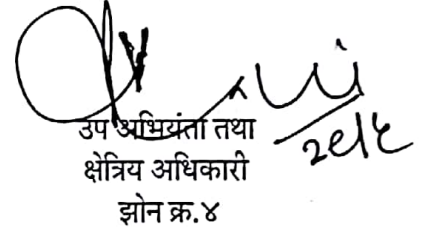 उप अभियंता तथा
क्षेत्रिय अधिकारी
झोन क्र.४